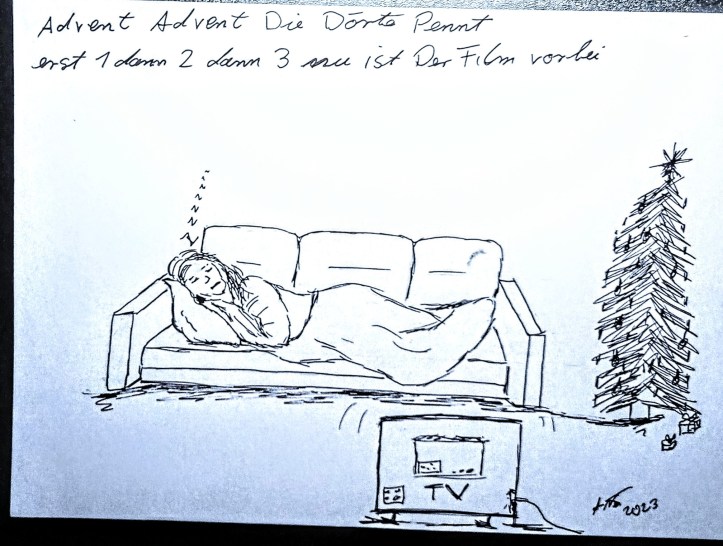 Advent Advent Die Dörte Pennt
erst 1 dann 2 dann 3 ist Der Film vorbei
z z z z z z z
TV
2023